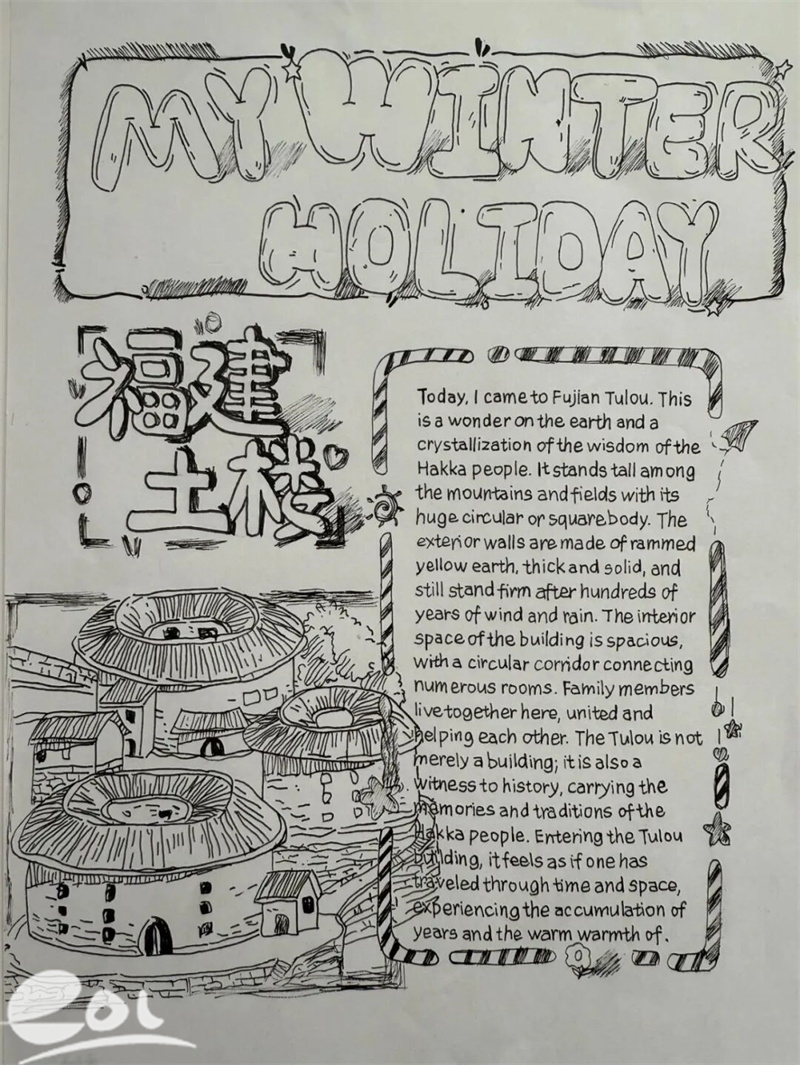 MY WINTER
HOLIDAY
福建
土楼
Today, I came to Fujian Tulou. This
is a wonder on the earth and a
crystallization of the wisdom of the
Hakka people. It stands tall among
the mountains and fields with its
huge circular or square body. The
exterior walls are made of rammed
yellow earth, thick and solid, and
still stand firm after hundreds of
years of wind and rain. The interior
space of the building is spacious,
with a circular corridor connecting
numerous rooms. Family members
live together here, united and
helping each other. The Tulou is not
merely a building; it is also a
witness to history, carrying the
memories and traditions of the
Hakka people. Entering the Tulou
building, it feels as if one has
traveled through time and space,
experiencing the accumulation of
years and the warm warmth of.
eol